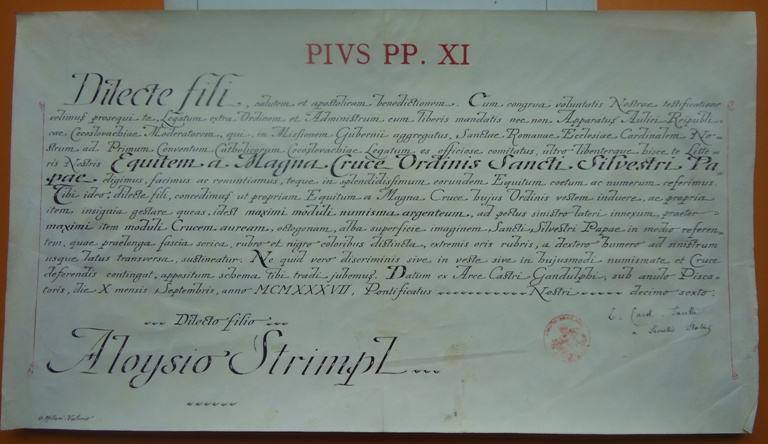 PIVS PP. XI
Dilecte fili, salutem et apostolicam benedictionem. Cum congrua voluntatis Nostrae testificatione
velimus prosequi te, Legatum extra Ordinem et Administrum cum liberis mandatis nec non Apparatus Aulici Reipubli-
cae Cecoslovachiae Moderatorem, qui, in Missionem Gubernii aggregatus, Sanctae Romanae Ecclesiae Cardinalem No-
strum ad Primum Conventum Catholicorum Cecoslovachiae Legatum es officiose comitatus, ultro libenterque hisce te Litte-
ris Nostris Equitem a Magna Cruce Ordinis Sancti Silvestri Pa-
pae eligimus, facimus ac renuntiamus, teque in splendidissimum eorundem Equitum coetum ac numerum referimus.
Tibi idro, dilecte fili, concedimus ut propriam Equitum a Magna Cruce hujus Ordinis vestem induere, ac propria
item insignia gestare queas, idest maximi moduli numisma argenteum, ad pectus sinistro lateri innexum, praeter
maximi item moduli Crucem auream, octogonam, alba superficie imaginem Sancti Silvestri Papae in medio referen-
tem, quae praelonga fascia serica, rubro et nigro coloribus distincta, extremis oris rubris, a dextero humero ad sinistrum
usque latus transversa, sustineatur. Ne quid vero discriminis sive in veste sive in hujusmodi numismate et Cruce
deferendis contingat, appositum schema tibi tradi jubemus. Datum ex Arce Castri Gandulphi, sub anulo Pisca-
toris, die X mensis Septembris, anno MCMXXXVII, Pontificatus Nostri decimo sexto.
Dilecto filio
Aloysio Strimpl
E. Card. Pacelli
a Secretis Status